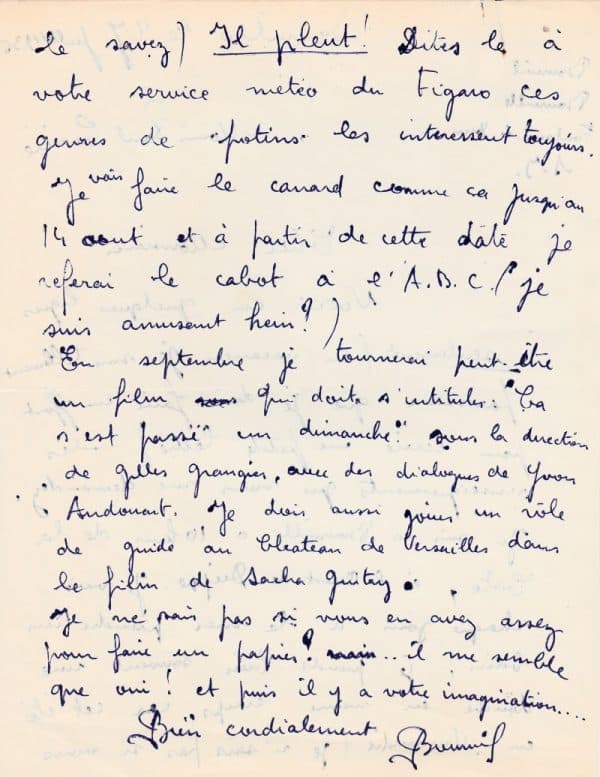 le savez) Il pleut! Dites le à
votre service météo du Figaro ces
genres de potins les interessent toujours.
Je vais faire le canard comme ca jusqu'au
14 aout et à partir de cette date je
referai le cabot à l'A.B.C. (je
suis amusant hein?)
En septembre je tournerai peut-être
un film qui doit s'intituler: "Ca
s'est passé un dimanche" sous la direction
de Gilles Grangier, avec des dialogues de Yvon
Audouart. Je dois aussi jouer un rôle
de guide au Chateau de Versailles dans
le film de Sacha Guitry.
Je ne sais pas si vous en avez assez
pour faire un papier? mais.. il me semble
que oui! et puis il y a votre imagination....
Bien cordialement Bourvil